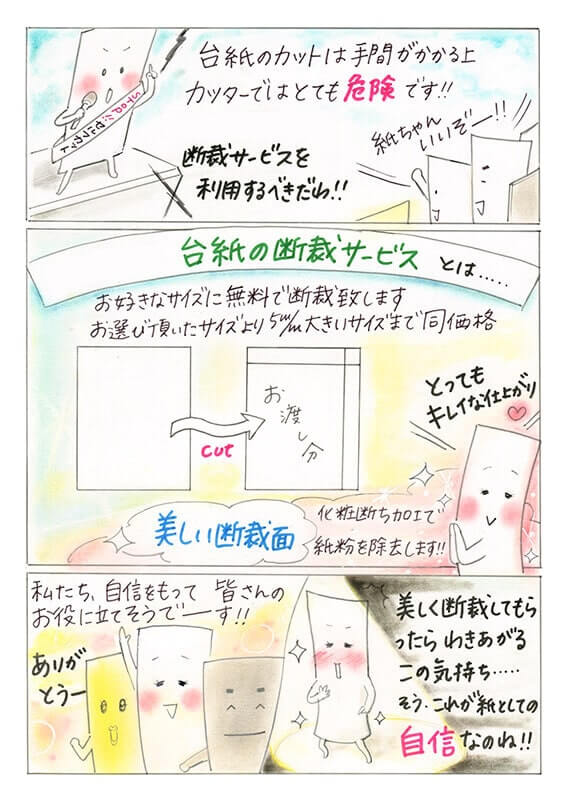 台紙のカットは手間がかかる上
カッターではとても危険です!!
STOP!! セルフカット
紙ちゃん
いいぞー!!
断裁サービスを
利用するべきだわ!!
台紙の断裁サービスとは.....
お好きなサイズに無料で断裁致します
お選び頂いたサイズより5m/m大きいサイズまで同価格
cut
お渡し分
とっても
キレイな仕上がり
美しい断裁面
化粧断ち加工で
紙粉を除去します!!
私たち、自信をもって 皆さんの
お役に立てそうでーす!!
ありが
とうー
美しく断裁してもら
ったら わきあがる
この気持ち.....
そう、これが紙としての
自信なのね!!